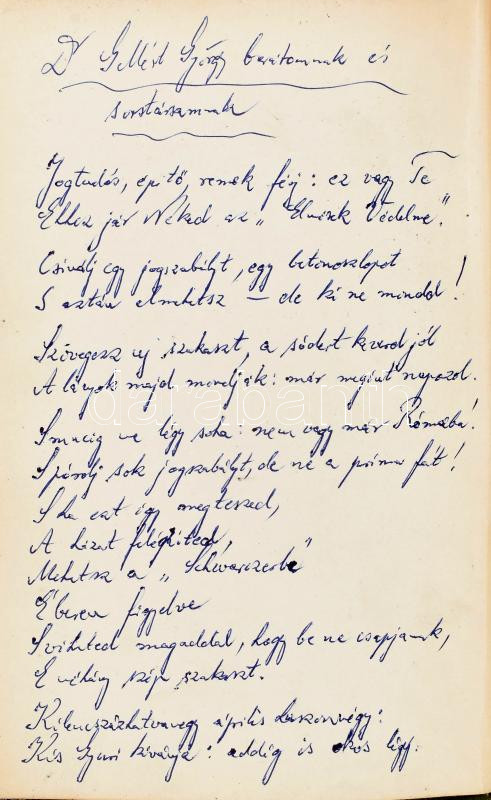 Dr Gellért György barátomnak és
sorstársamnak
Jogtudós, építő, remek férj: ez vagy Te
Ehhez jár Néked az „Elvizek Védelme"
Csinálj egy jogszabályt, egy betonoszlopot
S aztán elmehetsz – de ki ne mondd!
Szövegezz új szakaszt, a sódert keverd jól
A lányok majd mondják: már megint napozol.
Smucig ne légy soha: nem vagy már Rómába!
Spórolj sok jogszabályt, de ne a príma fát!
S ha ezt így megteszed,
A házat felépíted,
Mehetsz a „Schwarczerbe"
Éberen figyelve
Sviháted magaddal, hogy be ne csapjanak,
E néhány szép szakaszt.
Kilencszázhatvanegy április huszonnégy:
Kis Gyuri kívánja: addig is okos légy.
darabanth